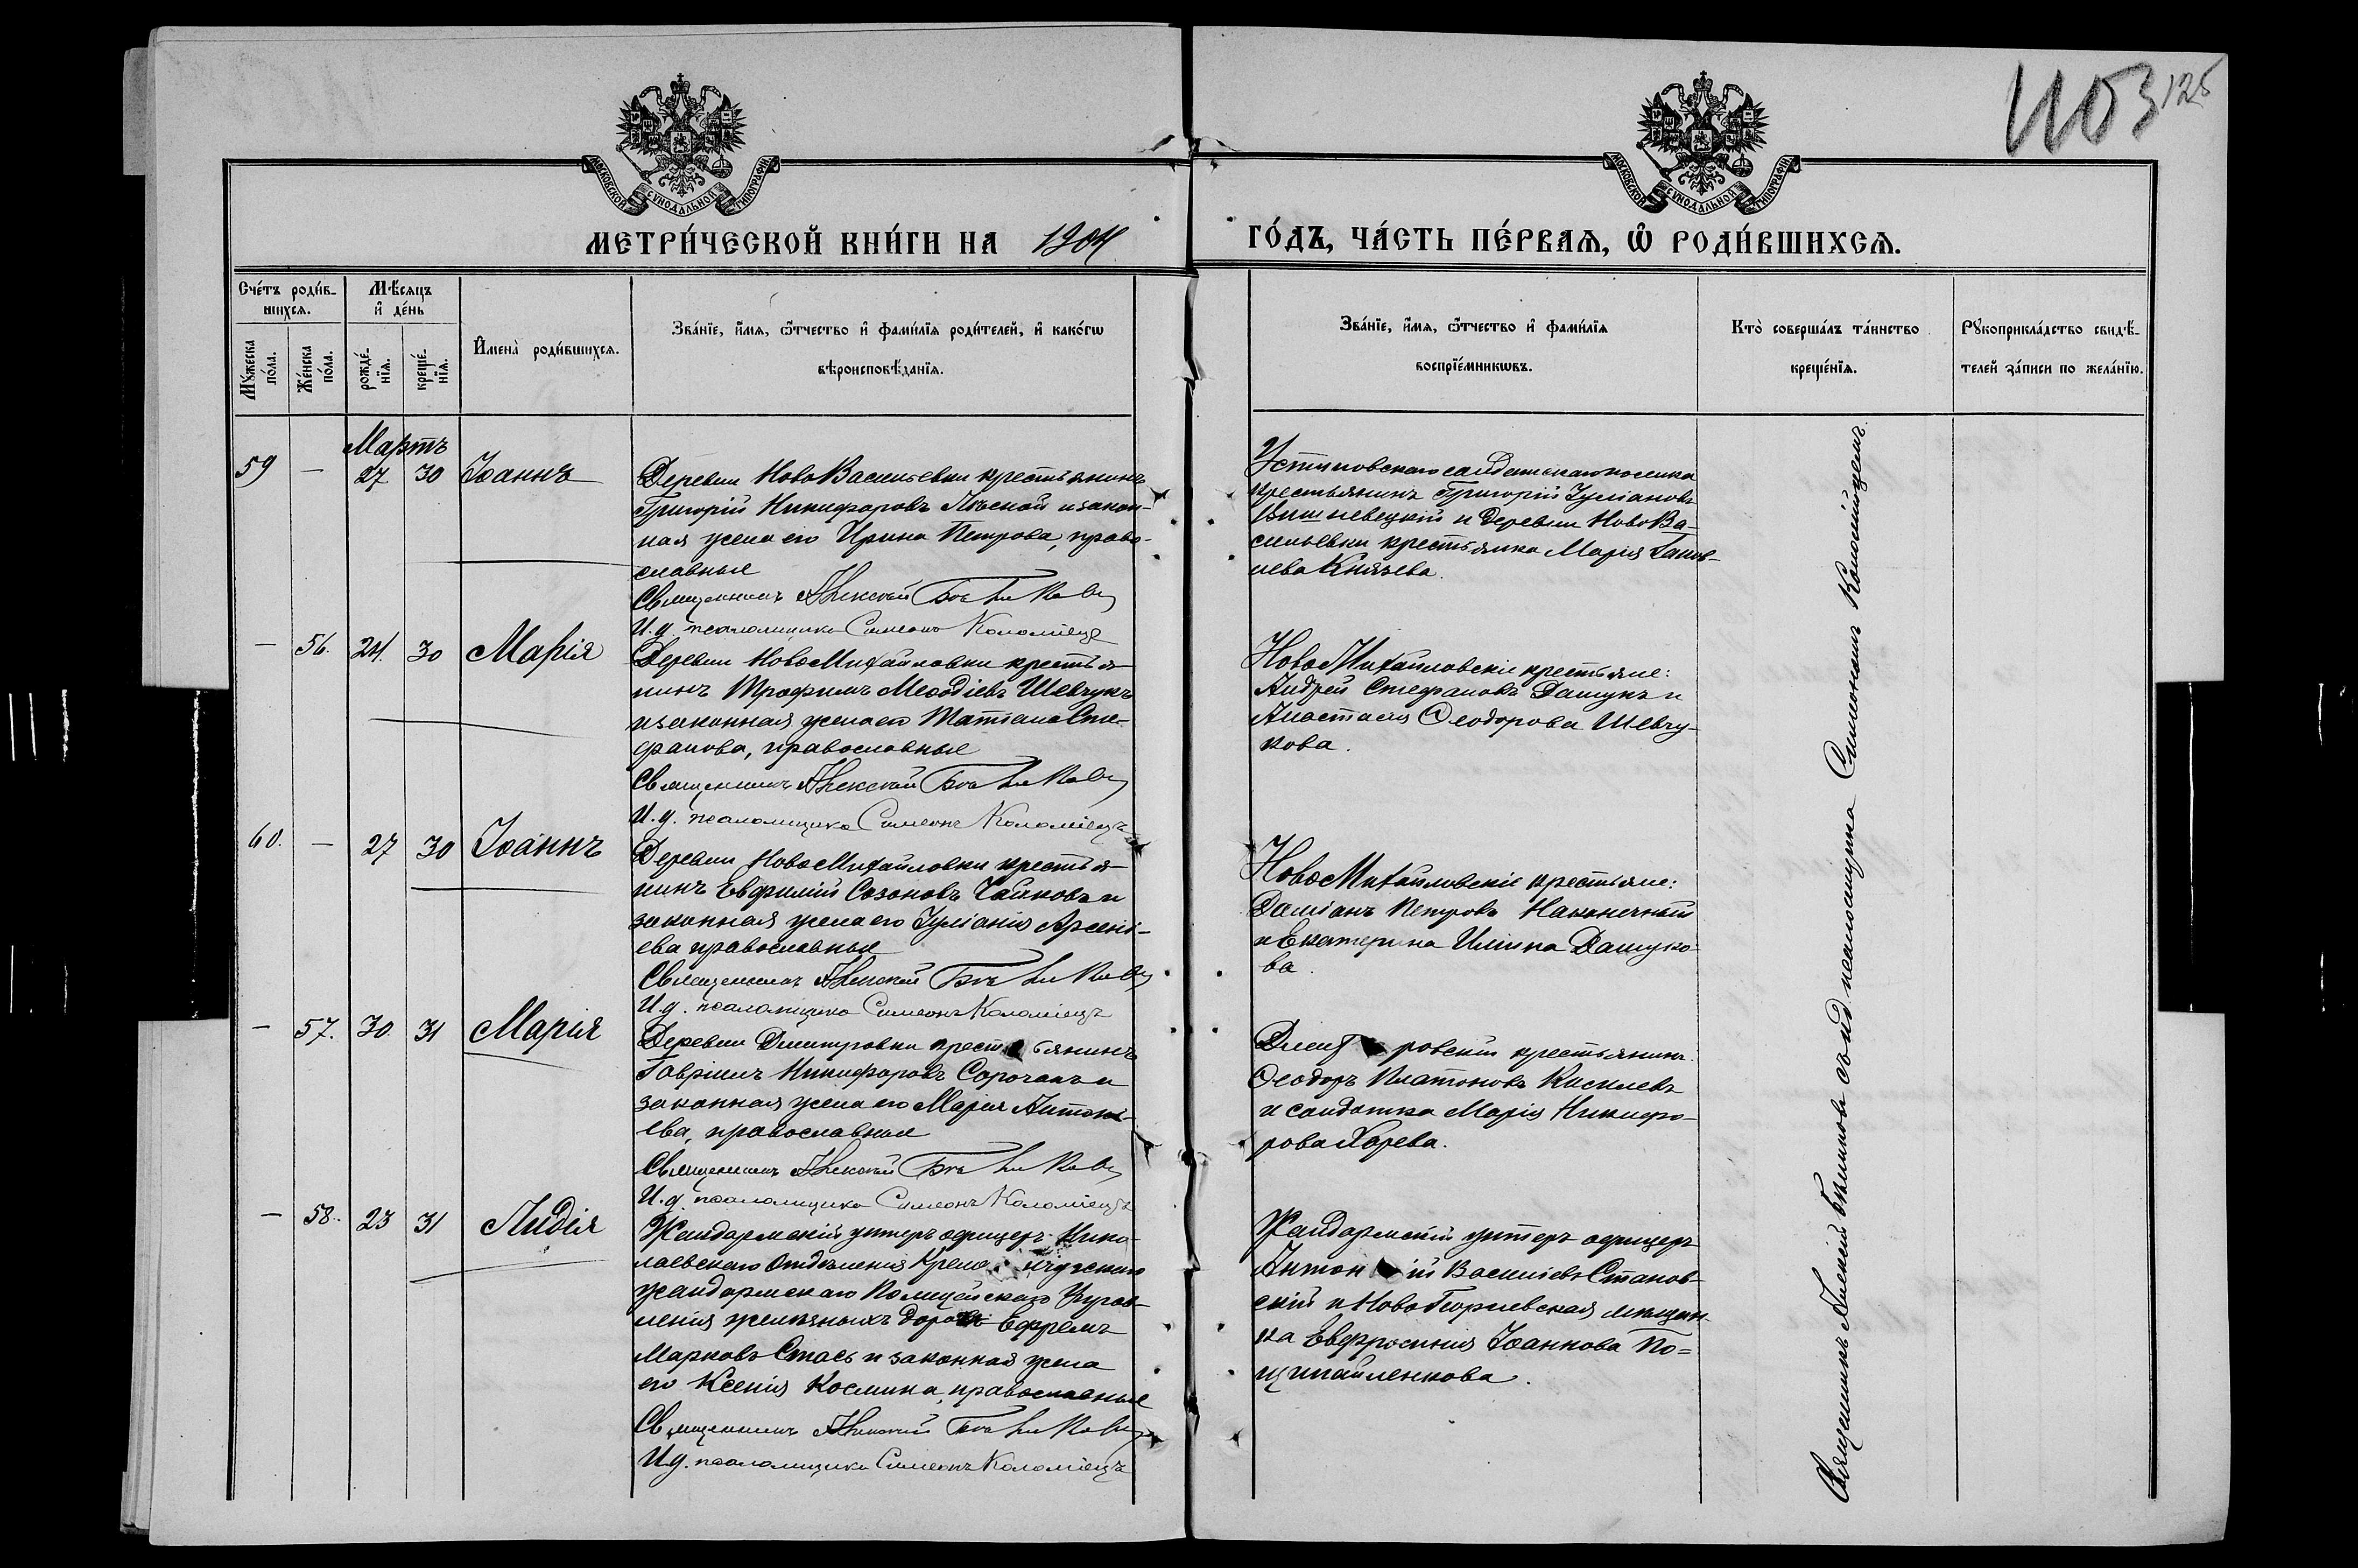 1103 125
МОСКОВСКОЙ СѴНОДАЛЬНОЙ ТИПОГРАФІИ
МОСКОВСКОЙ СѴНОДАЛЬНОЙ ТИПОГРАФІИ
МЕТРИ́ЧЕСКОЙ КНИ́ГИ НА 1904
ГО́ДЪ, ЧА́СТЬ ПЕ́РВАѦ, Ѽ РОДИ́ВШИХСѦ.
Счётъ роди́в-
шихсѧ.
Мѣ́сѧцъ
и҆ де́нь
Мꙋ́жеска по́ла.
Же́нска по́ла.
рожде́-
нїѧ.
креще́-
нїѧ.
И҆мена̀ роди́вшихсѧ.
Зва́нїе, и҆́мѧ, ѻ҆́тчество и҆ фами́лїѧ роди́телей, и҆ како́гѡ
вѣроисповѣ́данїѧ.
Зва́нїе, и҆́мѧ, ѻ҆́тчество и҆ фами́лїѧ
воспрїе́мникѡвъ.
Кто̀ соверша́лъ та́инство
креще́нїѧ.
Рꙋкоприкла́дство свидѣ́-
телей за́писи по жела́нїю.
Мартъ
59 — 27 30 Іоаннъ
Деревни НовоВасильевки крестьянинъ
Григорій Никифоровъ и закон-
ная жена его Ирина Петрова, право-
славные
Священникъ Алексѣй
И. д. псаломщика Симеонъ Коломіецъ
крестьянинъ Григорій Іуліановъ
Вишневецкій и деревни НовоВа-
сильевки крестьянка Марія
Князева.
— 56. 24. 30 Марія
Деревни НовоМихайловки крестья-
нинъ Трофимъ Меѳодіевъ Шевчукъ
и законная жена его Татіана Сте-
фанова, православные
Священникъ Алексѣй
И. д. псаломщика Симеонъ Коломіецъ
НовоМихайловскіе крестьяне:
Андрей Стефановъ Дашукъ и
Анастасія Ѳеодорова Шевчу-
кова.
60. — 27 30 Іоаннъ
Деревни НовоМихайловки крестья-
нинъ Евфимій Созоновъ Чайковъ и
законная жена его Іуліанія Арсені-
ева православные
Священникъ Алексѣй
И. д. псаломщика Симеонъ Коломіецъ
НовоМихайловскіе крестьяне:
Даміанъ Петровъ Наконечный
и Екатерина Иліина Дашуко-
ва.
— 57. 30. 31 Марія
Деревни Дмитровки крестьянинъ
Гавріилъ Никифоровъ Сорочанъ и
законная жена его Марія Антоні-
ева, православные
Священникъ Алексѣй
И. д. псаломщика Симеонъ Коломіецъ
крестьянинъ
Ѳеодоръ Платоновъ Киселевъ
и солдатка Марія Никифо-
рова Харева.
— 58. 23 31 Лидія
Жандармскій унтеръ офицеръ Нико-
лаевскаго Отдѣленія
жандармскаго Полицейскаго Управ-
ленія желѣзныхъ дорогъ Ефремъ
Марковъ Стась и законная жена
его Ксенія Космина, православные
Священникъ Алексѣй
И. д. псаломщика Симеонъ Коломіецъ
Жандармскій унтеръ офицеръ
Антоній Василіевъ Станов-
скій и НовоГеоргіевская мѣщан-
ка Евфросинія Іоаннова По-
Священникъ Алексѣй съ и. д. псаломщика Симеономъ Коломійцемъ.